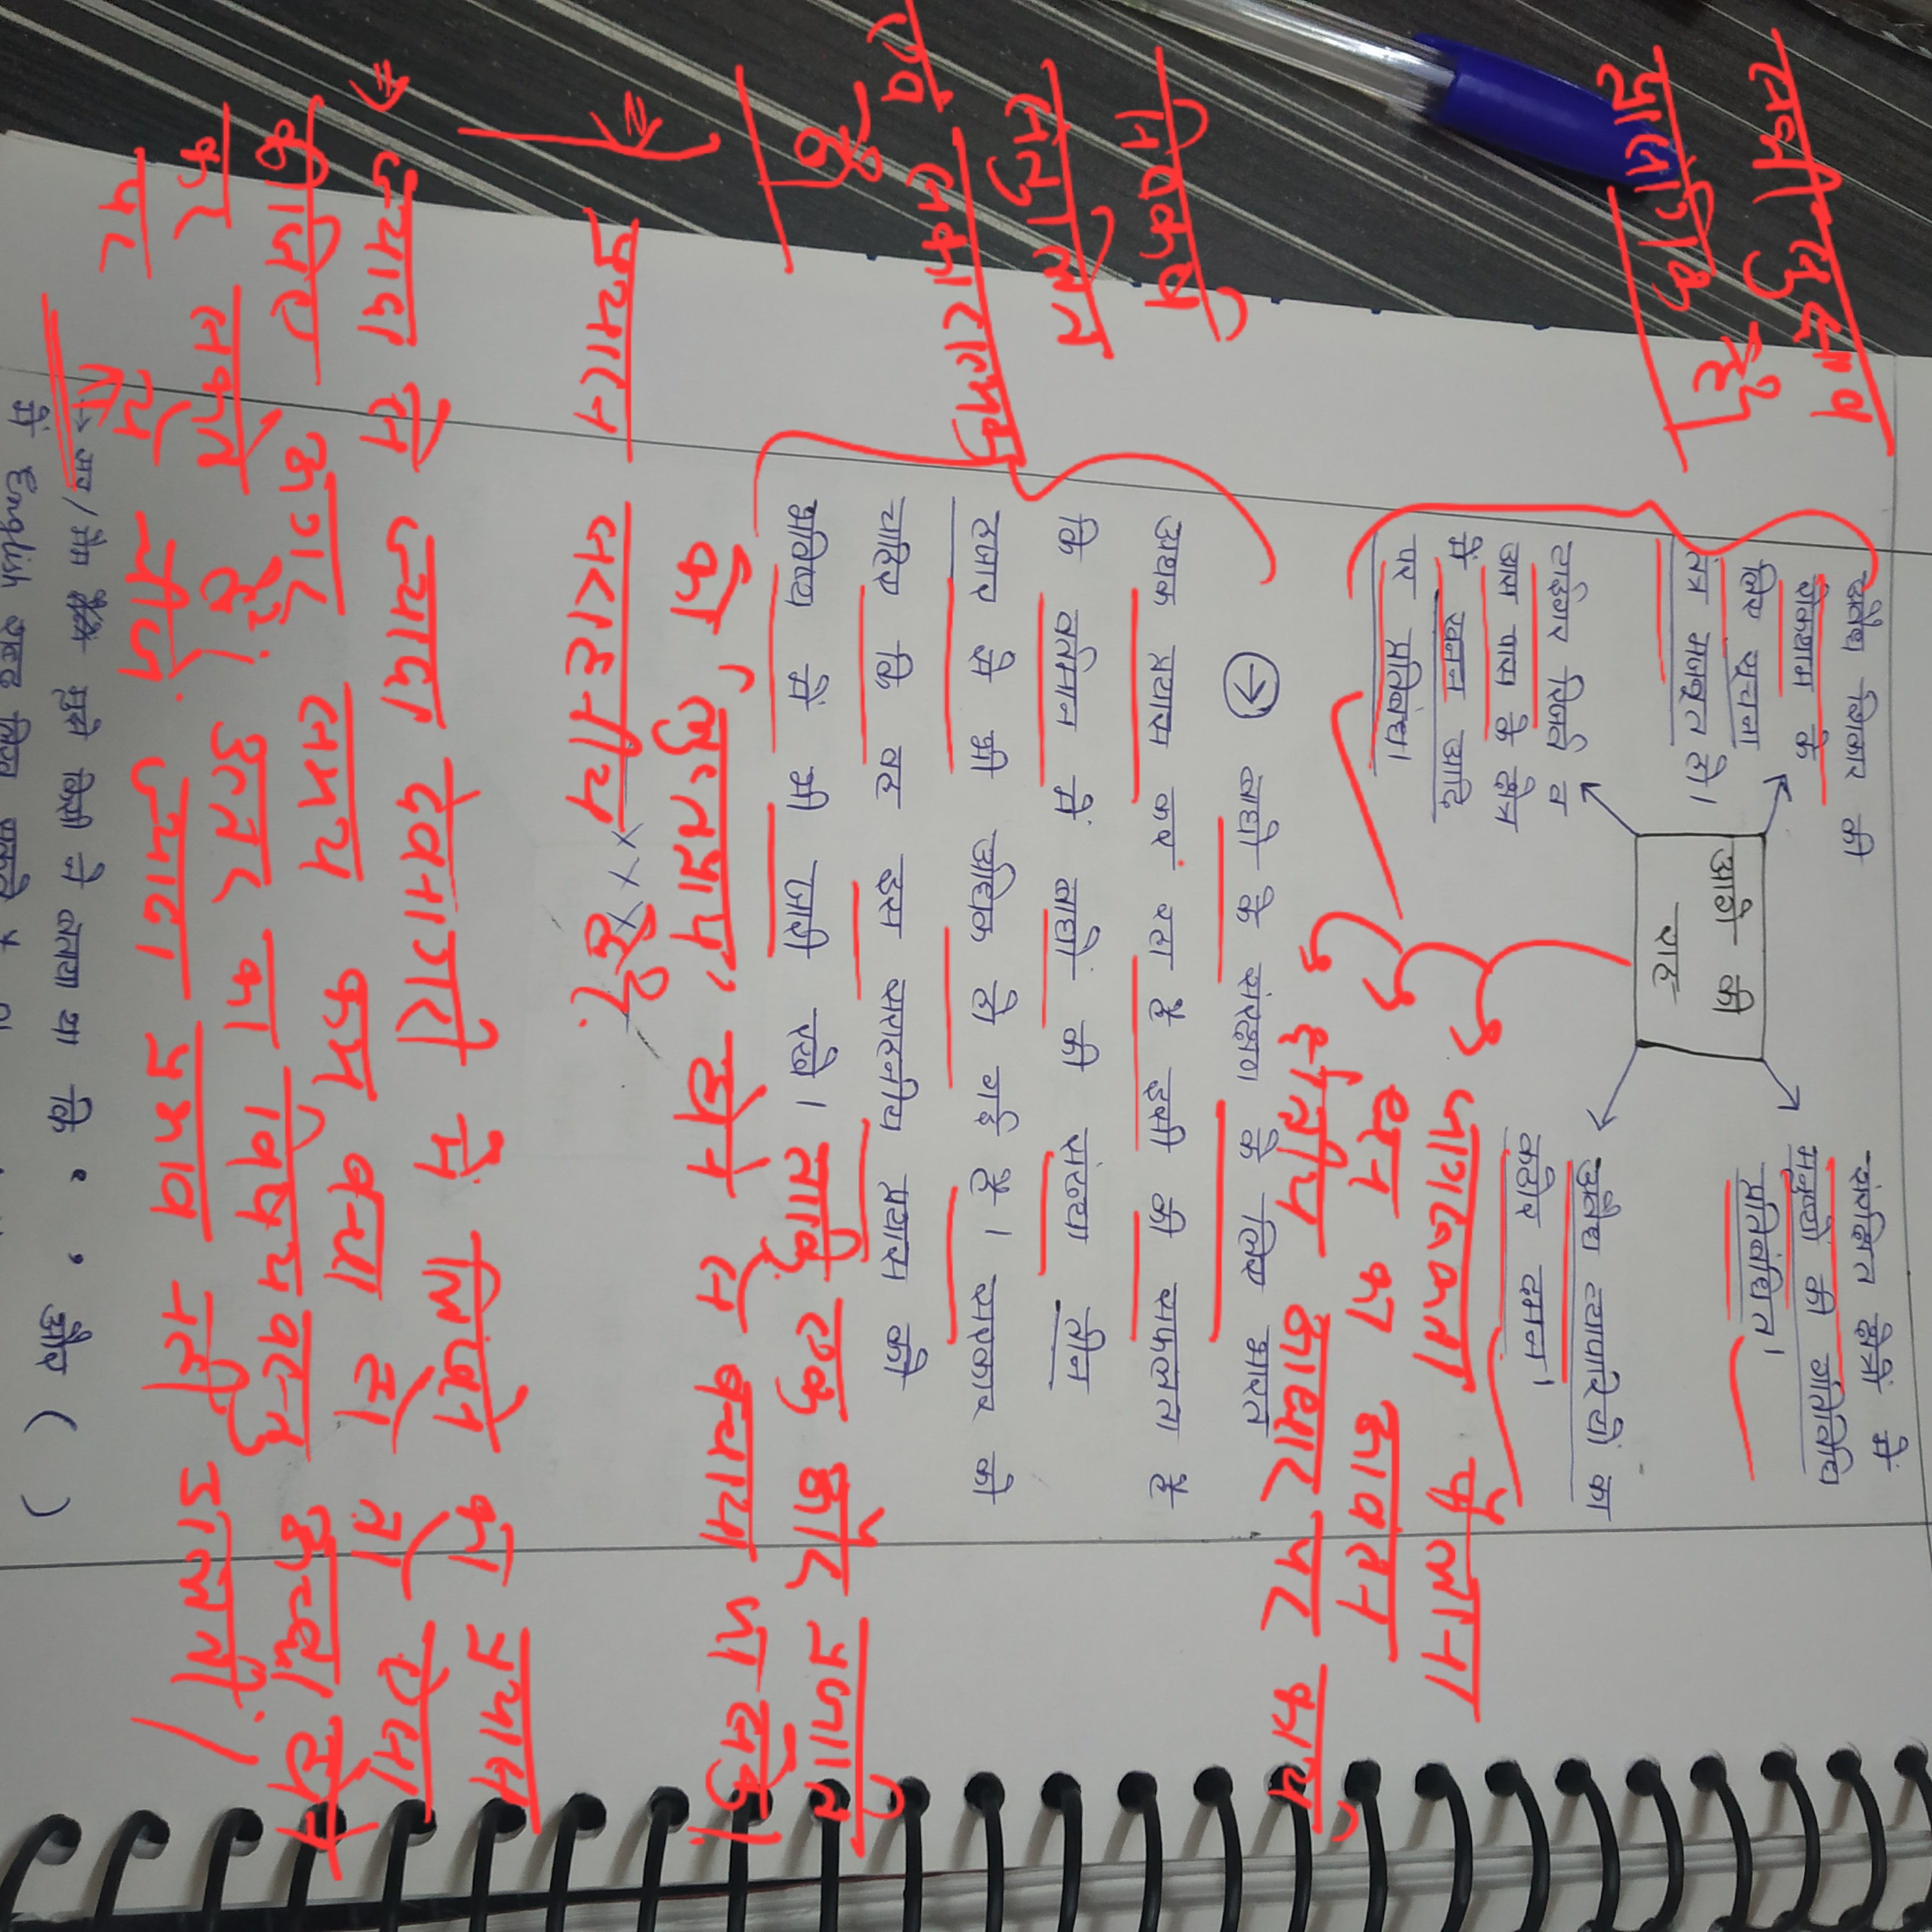 अवैध शिकार की
रोकथाम के
लिए सूचना
तंत्र मजबूत हो।
टाइगर रिजर्व व
आस पास के क्षेत्र
में खनन आदि
पर प्रतिबंध।
आगे की
राह
संरक्षित क्षेत्रों में
मनुष्यों की गतिविधि
प्रतिबंधित।
अवैध व्यापारियों का
कठोर दमन।
सभी सुझाव
प्रासंगिक हैं
जागरूकता फैलाना
धन का आवंटन
क्षेत्रीय आधार पर कार्य
→ बाघो के संरक्षण के लिए भारत
अथक प्रयास कर रहा है इसी की सफलता है
कि वर्तमान में बाघों की संख्या तीन
हजार से भी अधिक हो गई है। सरकार को
चाहिए कि वह इस सराहनीय प्रयास को
भविष्य में भी जारी रखे।
निष्कर्ष
संतुलित
एवं सकारात्मक
है
ताकि एक और प्रजाति
को 'लुप्तप्राय' होने से बचाया जा सके।
⇒ प्रयास सराहनीय है।
⇒ ज्यादा से ज्यादा देवनागरी में लिखने का प्रयास
कीजिए अगर समय कम बचा हो तो ऐसा
कर सकते हैं। उत्तर का विषयवस्तु अच्छा होने
पर ये चीजें ज्यादा प्रभाव नहीं डालती।
→ सर/मैम मुझे किसी ने बताया था कि
में English शब्द लिख सकते और ( )